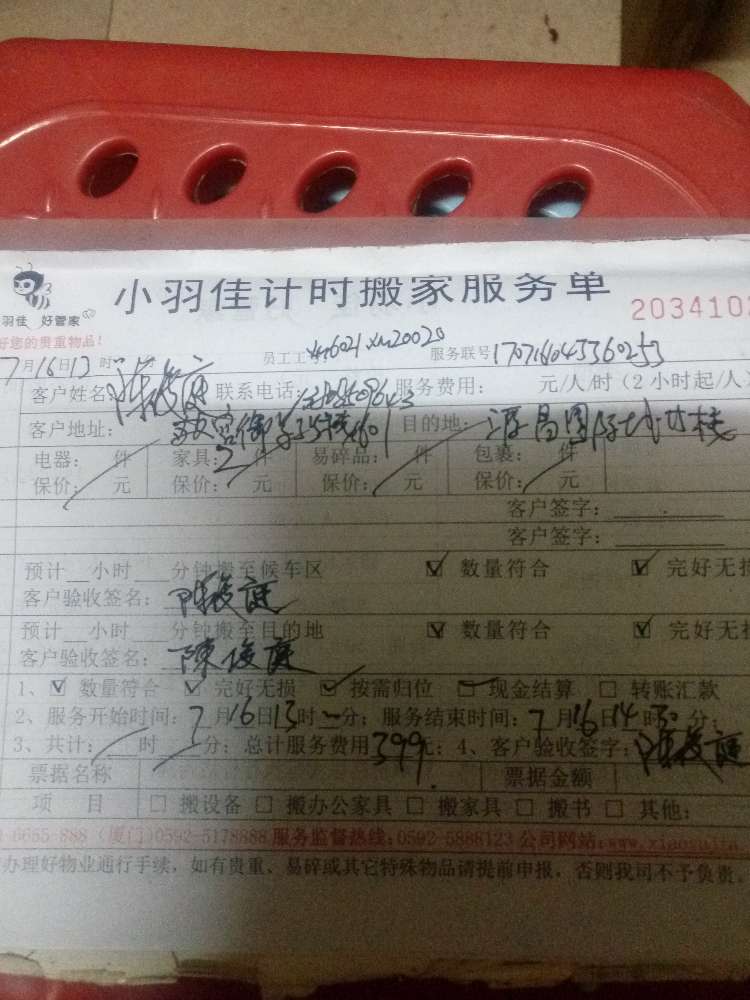 小羽佳计时搬家服务单
羽佳 好管家
2034102
好您的贵重物品!
7月16日13时 员工工号 xm6021 xm20020 服务联号 170716045360253
客户姓名 联系电话: 服务费用: 元/人/时(2小时起/人)
客户地址: 目的地:
电器: 件 家具:2件 易碎品: 件 包裹: 件
保价: 元 保价: 元 保价: 元 保价: 元
客户签字:
客户签字:
预计 小时 分钟搬至候车区 ☑ 数量符合 ☑ 完好无损
客户验收签名:
预计 小时 分钟搬至目的地 ☑ 数量符合 ☑ 完好无损
客户验收签名:陳俊庭
1、☑ 数量符合 ☑ 完好无损 ☑ 按需归位 ☑ 现金结算 □ 转账汇款
2、服务开始时间:7月16日13时 分;服务结束时间:7月16日14时30分;
3、共计: 时 分;总计服务费用399元;4、客户验收签字:
票据名称 票据金额
项 目 □ 搬设备 □ 搬办公家具 □ 搬家具 □ 搬书 □ 其他:
6665-888 (厦门)0592-5178888 服务监督热线:0592-5888123 公司网站:
办理好物业通行手续,如有贵重、易碎或其它特殊物品请提前申报,否则我司不予负责。